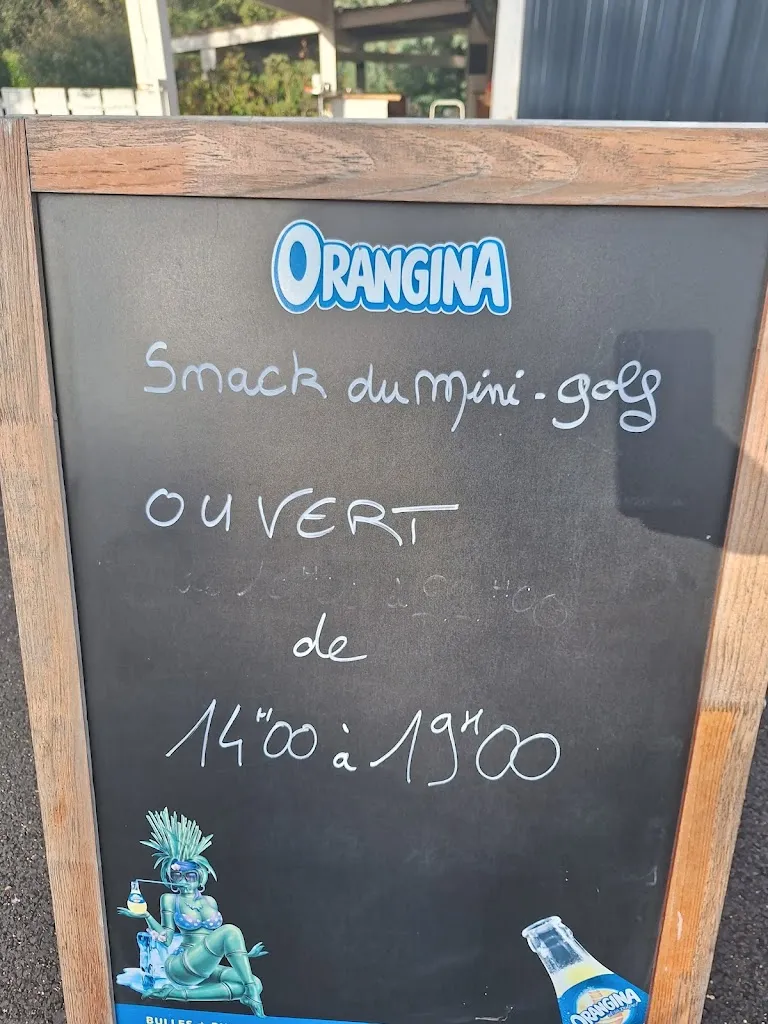 ORANGINA
Smack du mini-golf
OUVERT
de
14H00 à 19H00
ORANGINA